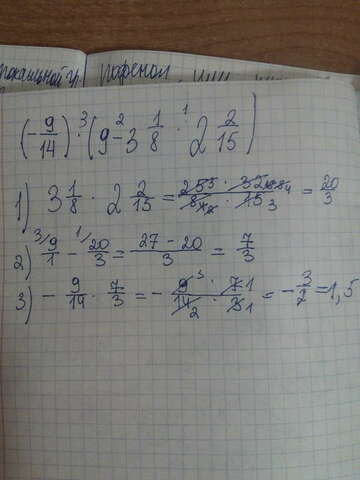 рофенол
(-9/14) ·³ (9 -² 3 1/8 ·¹ 2 2/15)
1) 3 1/8 · 2 2/15 = 25⁵ · 32 / 8 · 15 3 = 20/3
2) 3/ 9/1 - 1/ 20/3 = 27 - 20 / 3 = 7/3
3) - 9/14 · 7/3 = - 9³ · 7 1 / 14 2 · 3 1 = - 3/2 = 1,5